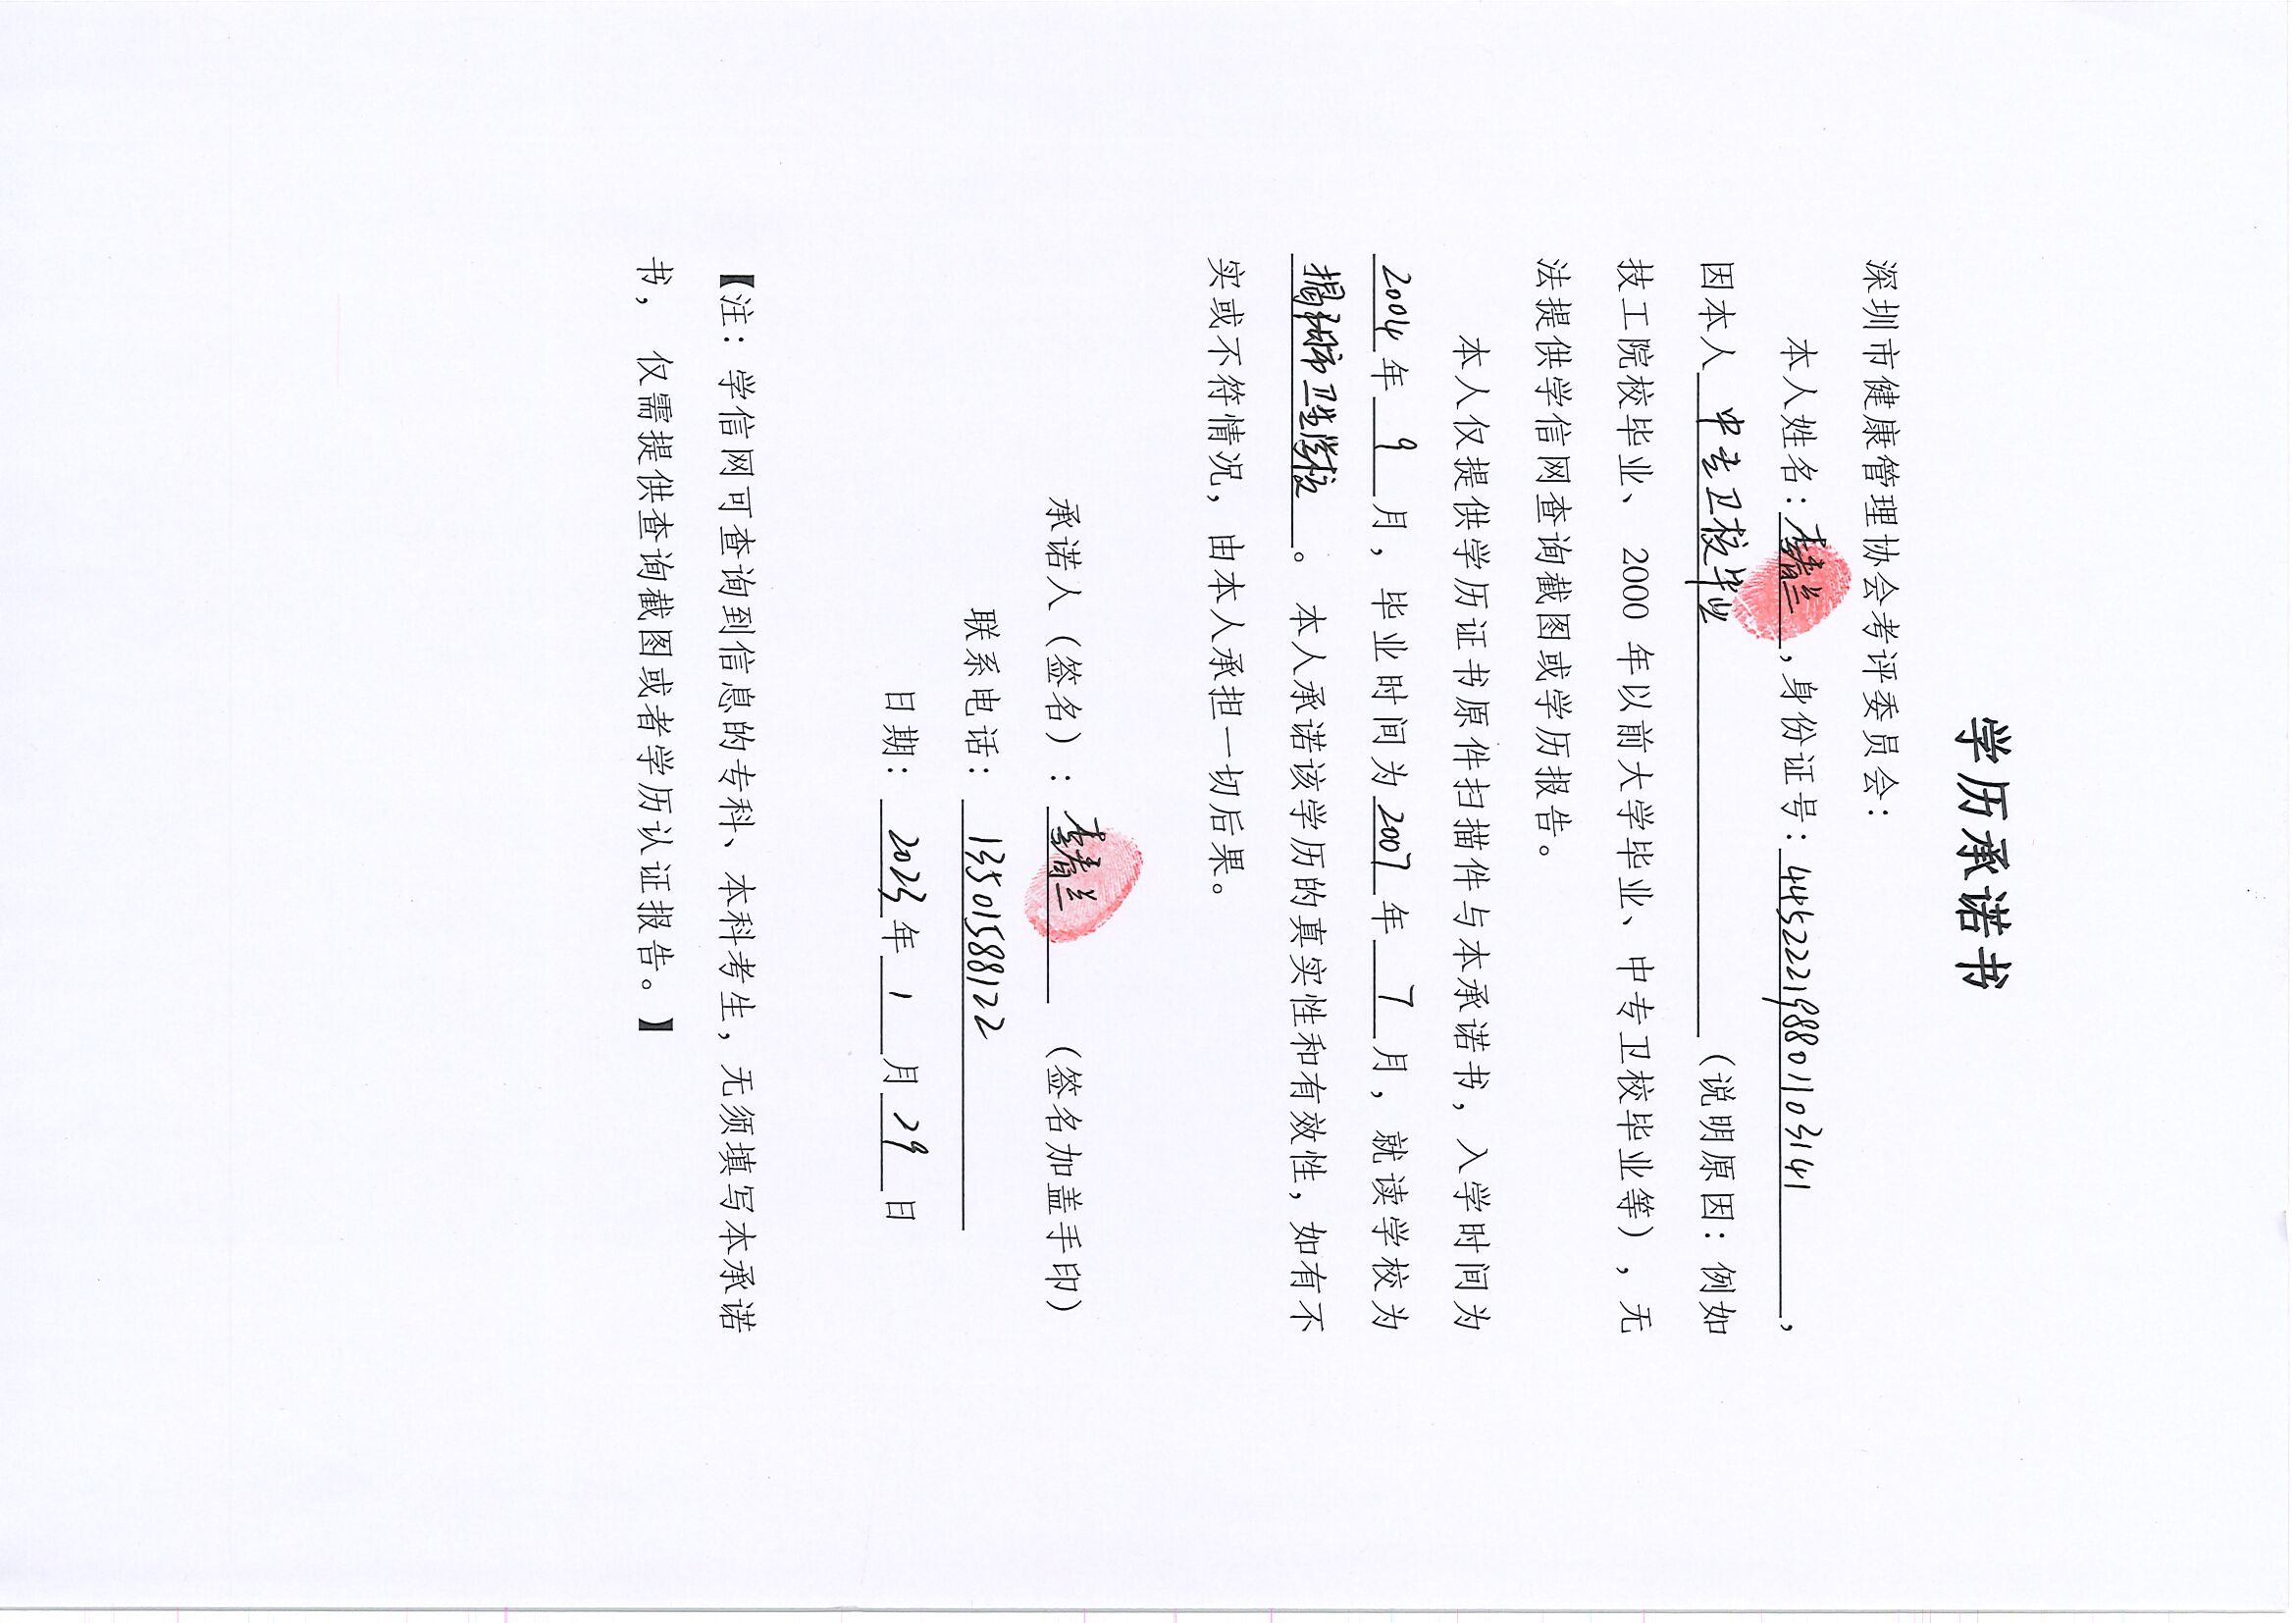 学历承诺书
深圳市健康管理协会考评委员会：
本人姓名：李青兰，身份证号：445222198801103141，
因本人 中专卫校毕业（说明原因：例如
技工院校毕业、2000 年以前大学毕业、中专卫校毕业等），无
法提供学信网查询截图或学历报告。
本人仅提供学历证书原件扫描件与本承诺书，入学时间为
2004 年 9 月，毕业时间为 2007 年 7 月，就读学校为
揭阳市卫生学校。本人承诺该学历的真实性和有效性，如有不
实或不符情况，由本人承担一切后果。
承诺人（签名）：李青兰（签名加盖手印）
联系电话：13501588122
日期：2023 年 1 月 29 日
【注：学信网可查询到信息的专科、本科考生，无须填写本承诺
书，仅需提供查询截图或者学历认证报告。】